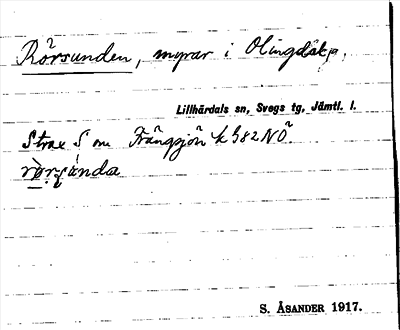 Rörsunden, myrar i Olingdal,
Lillhärdals sn, Svegs tg, Jämtl. l.
Strax S om Trängsjön k 982 NÖ.
S. ÅSANDER 1917.